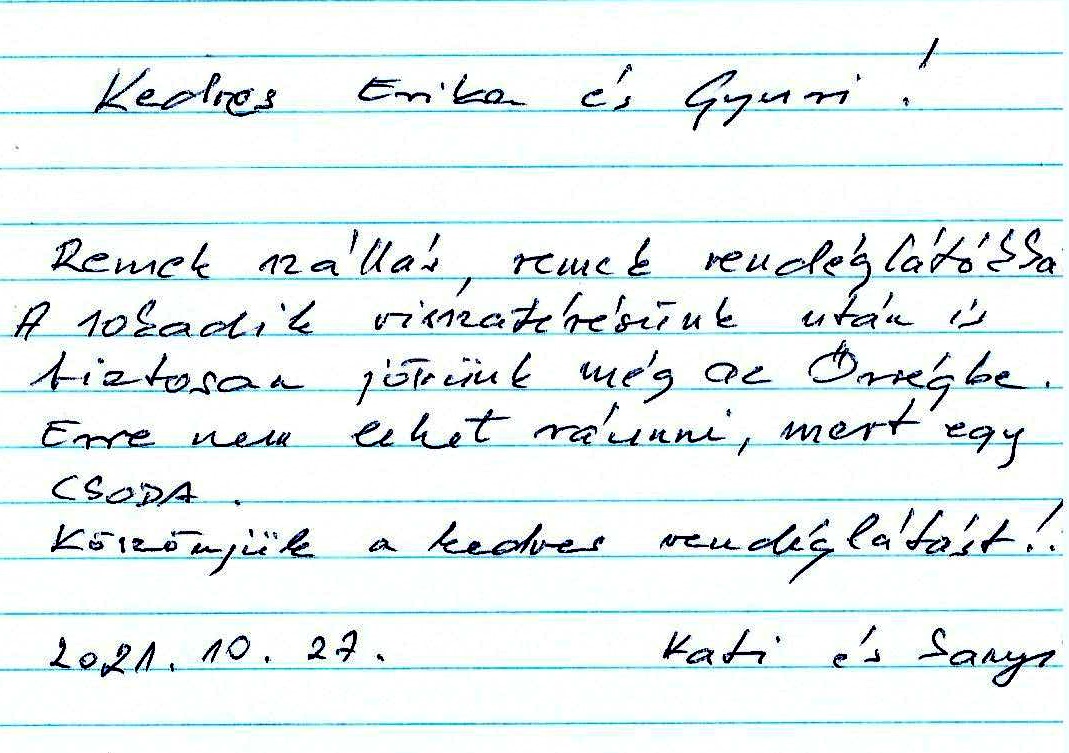 Kedves Erika és Gyuri!
Remek szállás, remek vendéglátással
A 10Sadik visszatérésünk után is
biztosan jövünk még az Őrségbe.
Erre nem lehet ráunni, mert egy
CSODA.
Köszönjük a kedves vendéglátást!
2021. 10. 27. Kati és Sanyi